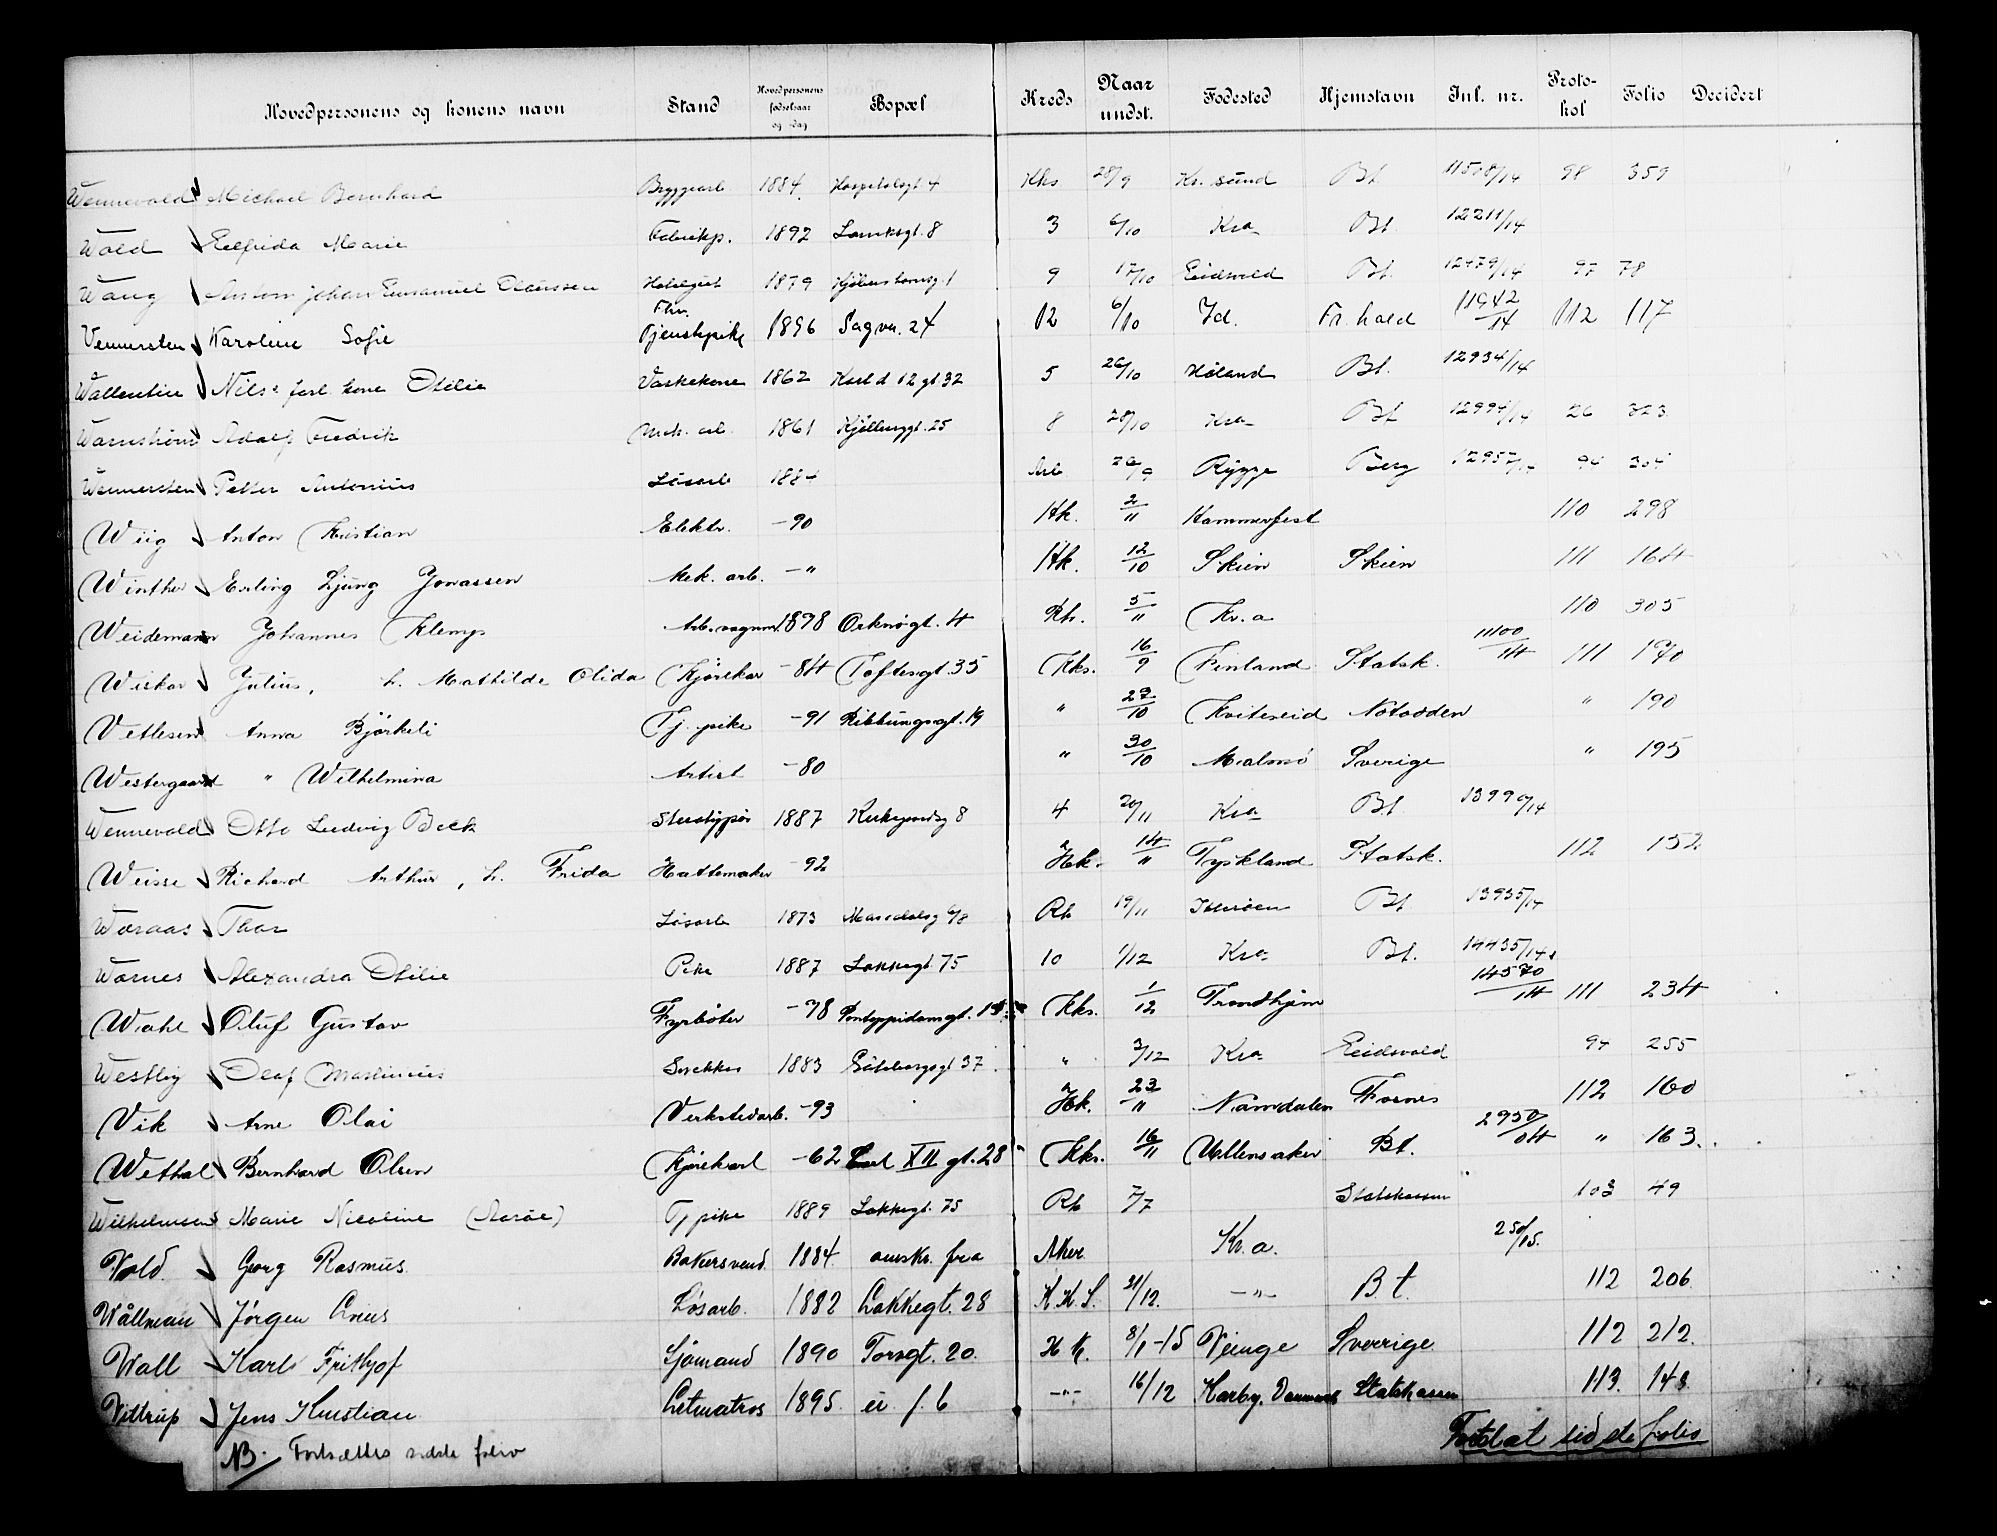 Hovedpersonens og konens navn Stand Hovedpersonens fødselsaar og -dag Bopæl Kreds Naar undst. Fødested Hjemstavn Inl. nr. Protokol Folio Decidert
Wennevold Michael Bernhard Bryggearb. 1884. Hospitalsgt 4 Kks 28/9 Kr. sund Bt 11508/14 98 359
Wold Elfrida Marie Fabrikp. 1892 8 3 6/10 Kra Bt 12211/14
Wang Anton Johan Emanuel Claussen 1879 1 9 17/10 Eidsvold Bt. 12479/14 97 78
Vennersten Karoline Sofie Fhv. Tjenstepike 1896 Sagvn. 24 12 6/10 Id. Fr. hald 11942/14 112 117
Wallentin Nils fasl. kone Otilie Vaskekone 1862 Karl d 12 gt. 32 5 26/10 Høland Bt. 12934/14
Warnstrøm Adolf Fredrik Mek. arb. 1861 25 8 28/10 Kra Bt 12994/14 26 323
Wennersten Petter Antonius Løsarb 1884 26/9 Rygge Berg 12957/14 94 304
Wiig Anton Kristian Elektr. -90 Hk. 2/11 Hammerfest 110 298
Winther Erling Ljung Jonassen Mek. arb. -" Hk. 12/10 Skien Skien 111 164
Weidemann Johannes Klemp Arb. vognm. 1878 Orknøgt. 4 Rh. 5/11 Kr.a 110 305
Wiskar Julius, h. Mathilde Olida Kjørekar -84 Toftesgt. 35 Kks. 16/9 Finland Statsk. 11100/14 111 190
Vetlesen Anna Bjørkeli Tj. pike -91 Ribbungsgt. 19 " 29/10 Kviteseid Notodden " 190
Westergaard " Wilhelmina Artist -80 " 30/10 Malmø Sverige " 195
Wennevold Otto Ludvig Beck Sterotypør 1887 Kirkegardsg 8 4 20/11 Kra Bt. 13990/14
Weisse Richard Arthur, h. Frida Hattemaker -92 Hk. 14/11 Tyskland Statsk. 112 152
Woraas Thor Løsarb 1873 Maridalsg 6/8 Rh 19/11 Bt 13935/14
Warnes Alexandra Otilie Pike 1887 Lakkegt 75 10 1/12 Kra Bt. 14435/14
Wahl Oluf Gustav Fyrbøter -78 Pontoppidansgt. Kks. 1/12 Trondhjem 14570/14 111 234
Westby Olaf Martinius Snekker 1883 Gøteborgsgt 37. " 3/12 Kra Eidsvold 94 255
Vik Arne Olai Verkstedarb. -93 Hk. 23/11 Namdalen Fosnes 112 160
Wethal Bernhard Olsen Kjørekarl -62 Carl XII gt. 28 Kks. 16/11 Ullensaker Bt. 2950/04 " 163.
Wilhelmsen Marie Nicoline (Aarøe) Tj pike 1889 Lakkegt. 75 Rh 7/7 Statskassen 103 49
Vold. Georg Rasmus. Bakersvend. 1884. ansk. fra Aker Kr.a. 250/15.
Wållman Jørgen Løsarb. 1882 Lakkegt. 28 K.K.S. 31/12. -"- Bt. 112 206
Wall Karl Frithjof Sjømand 1890 Torvgt. 20. H K. 8/1-15 Veinge Sverrige 112 212.
Vittrup Jens Kristian Letmatros 1895. ei f. b -"- 16/12 Harby. Danmark Statskassen 113. 148.
NB. Fortsættes sidste folio Fortsat sidste folio